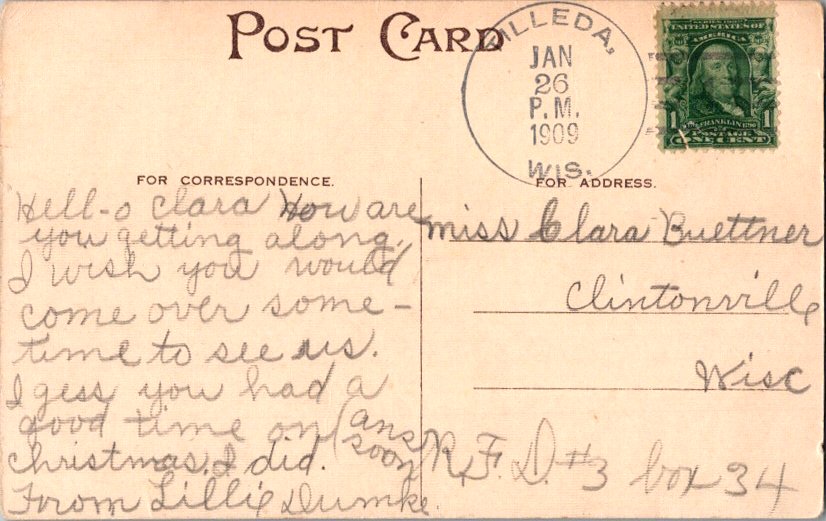 POST CARD
HILLEDA,
JAN
26
P.M.
1909
WIS.
SERIES 1902
UNITED STATES OF
AMERICA
1 FRANKLIN 1790 1
POSTAGE
ONE CENT
FOR CORRESPONDENCE.
FOR ADDRESS.
Hell-o Clara How are
you getting along.
I wish you would
come over some-
time to see us.
I gess you had a
good time on
Christmas. I did.
(ans
soon
From Lillie Dumke
miss Clara Buettner
Clintonville
Wisc
R. F. D. #3 box 34